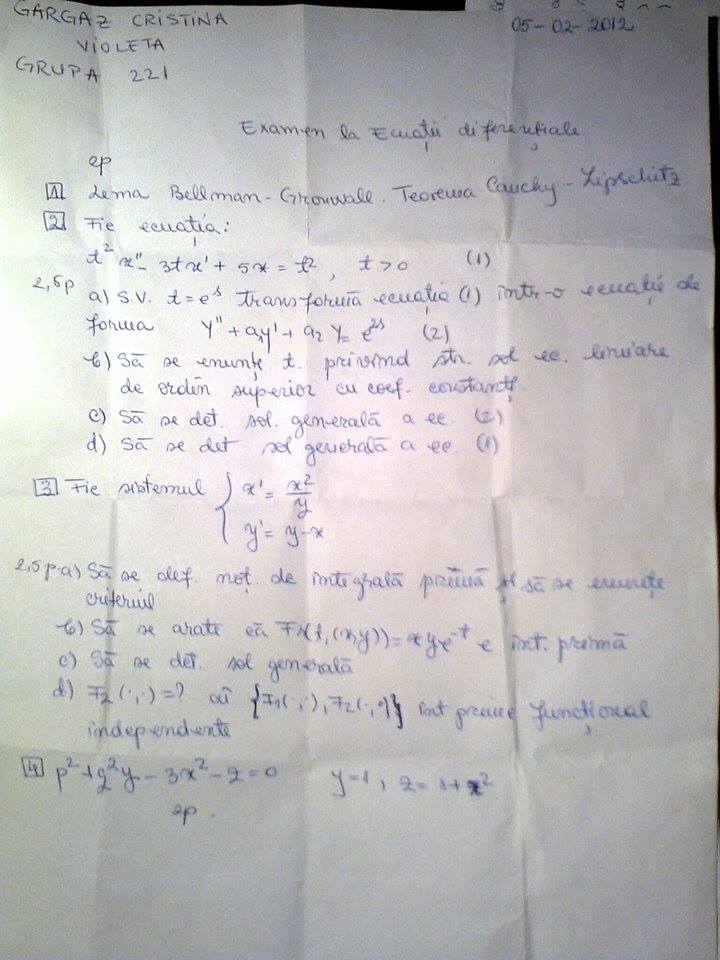 GARGAZ CRISTINA
VIOLETA
GRUPA 221
05-02-2012
Examen la Ecuații diferențiale
2p
1 Lema Bellman-Gronwall. Teorema Cauchy-Lipschitz
2 Fie ecuația:
t² x'' - 3tx' + 5x = t², t > 0 (1)
2,5p a) S.V. t = e^s transformă ecuația (1) într-o ecuație de
forma y'' + a₁y' + a₂y = e^{2s} (2)
b) Să se enunțe t. privind str. sol ec. liniare
de ordin superior cu coef. constanți.
c) Să se det. sol. generală a ec. (2)
d) Să se det sol generală a ec. (1)
3 Fie sistemul { x' = x²/y
y' = y-x
2,5p. a) Să se def. noț. de integrală primă și să se enunțe
criteriul
b) Să se arate că F₁(t,(x,y)) = xye^{-t} e int. primă
c) Să se det. sol generală
d) F₂(·,·) = ? aî {F₁(·,·), F₂(·,·)} int prime funcțional
independente
4 p² + q²y - 3x² - z = 0 y = 1, z = 1 + x²
2p.